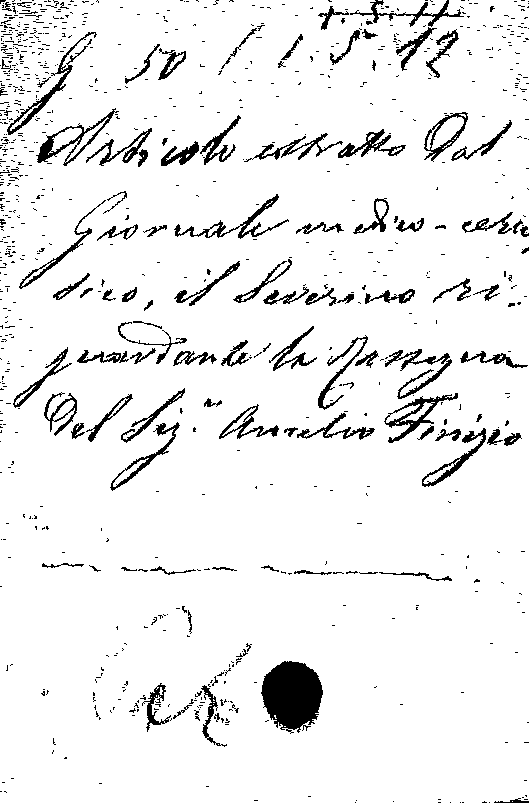 1. 5. 11
G. 50 / 1. 5. 12
Articolo estratto dal
Giornale medico-cera
tico, il Severino ri-
guardante la Rassegna
del Sig.r Aurelio Finizio